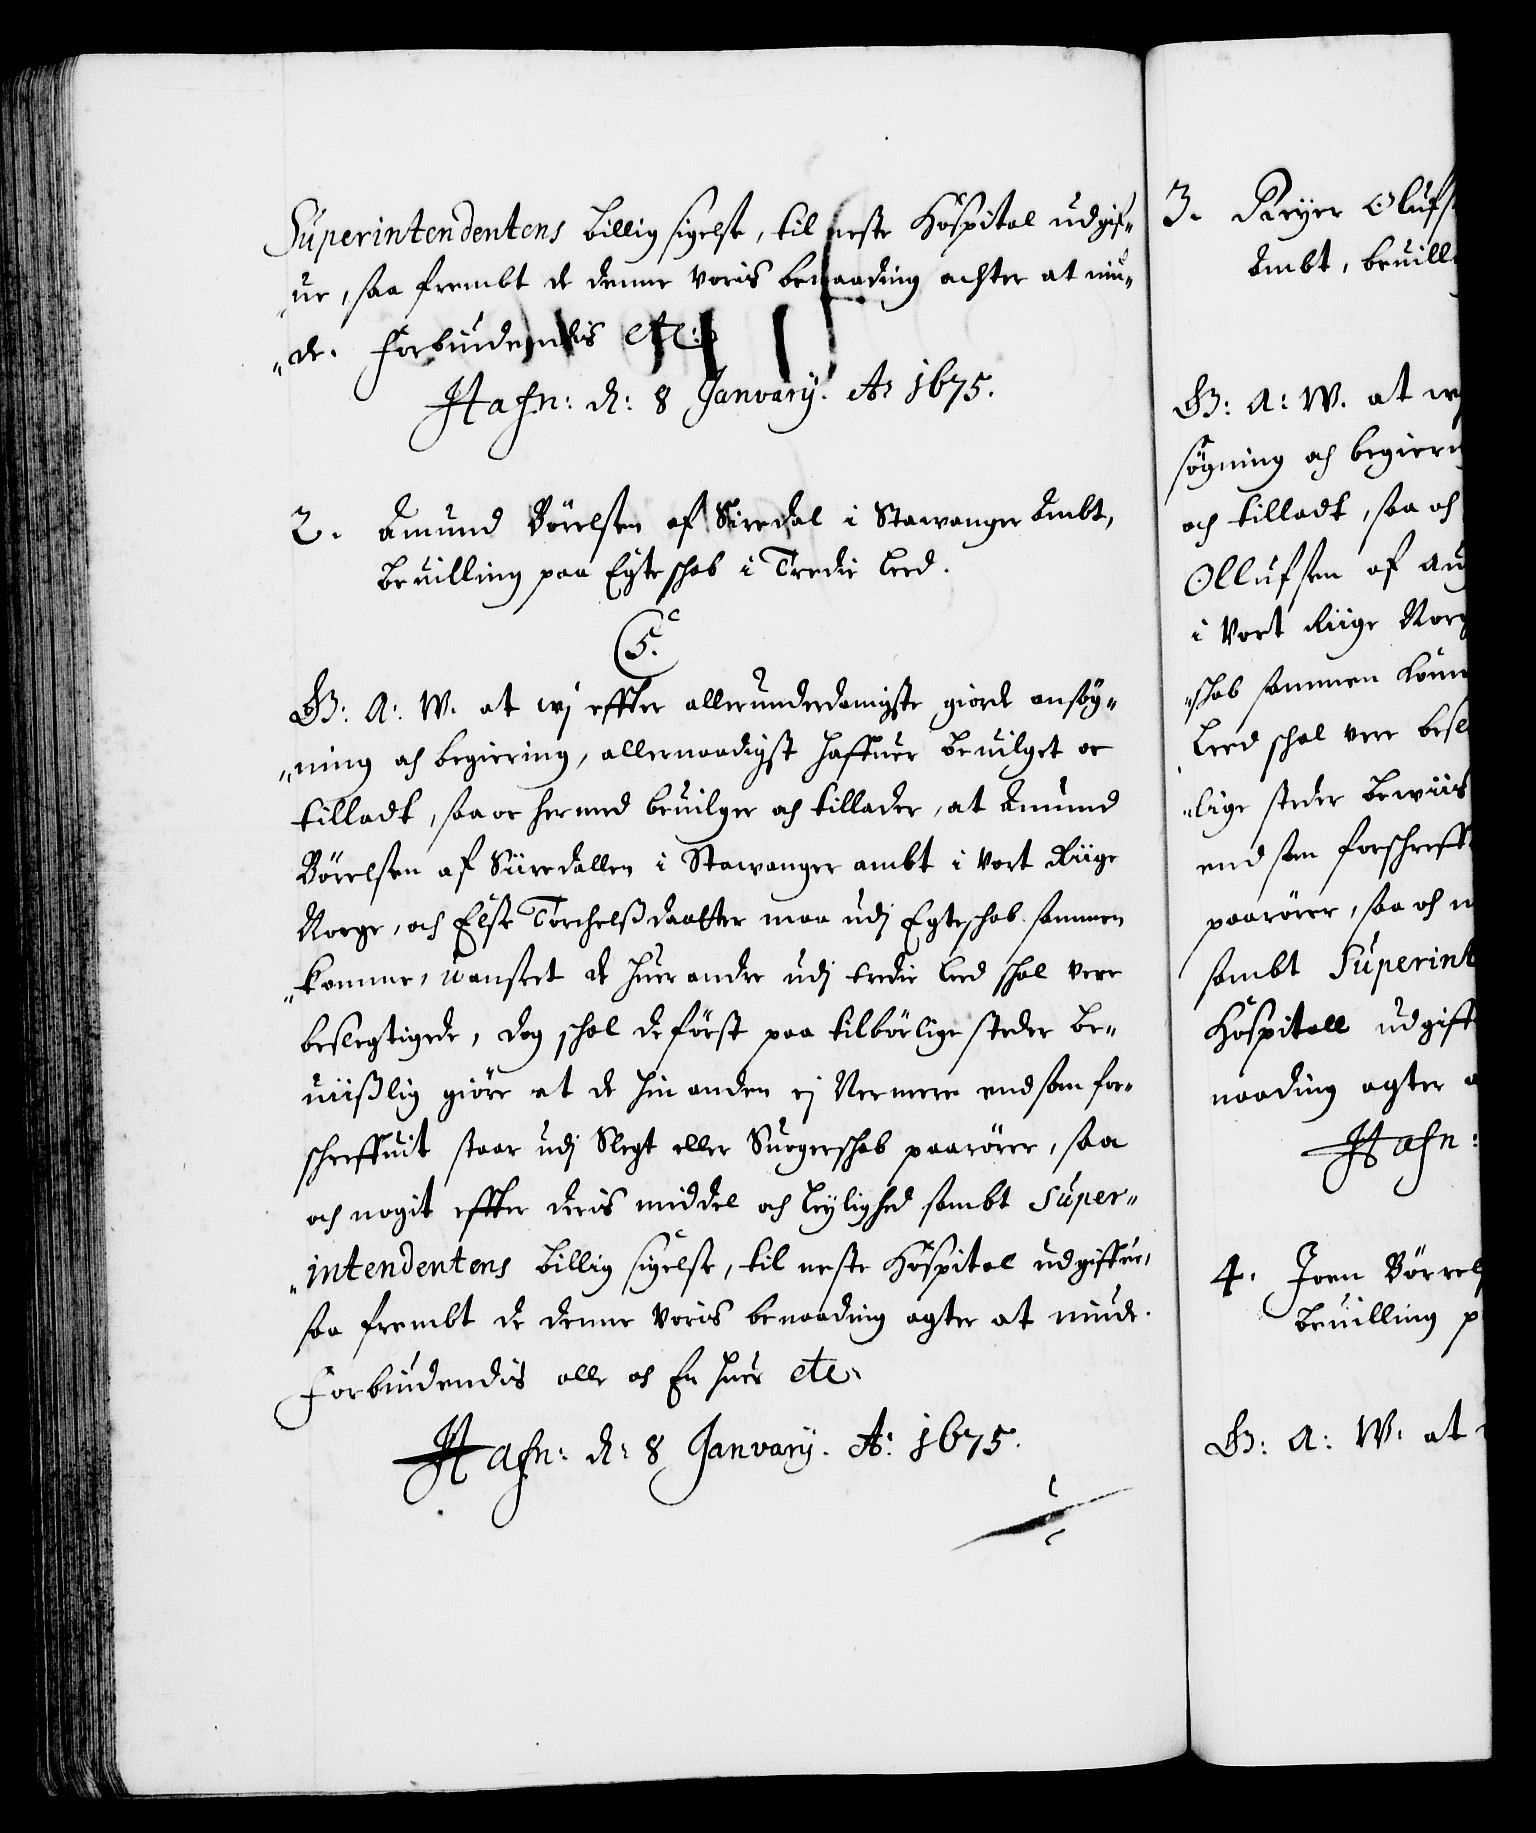 Superintendentens billig sigelse, til neste Hospital udgif„
„ue, saa frembt de denne voris benaading achter at niu„
„de. Forbiudendis etc:
Hafn: d: 8 January. Ao 1675.
2. Amund Börelsen af Siredal i Stawanger Ambt,
beuilling paa Egteschab i Tredie Leed.
C5.
G: A: W. at wj effter allerunderdanigste giorde ansög„
„ning och begiering, allernaadigst haffuer beuilget oc
tilladt, saa oc hermed beuilger och tillader, at Amund
Börelsen af Siiredallen i Stawanger ambt i Vort Riige
Norge, och Else Torchelßdaatter maa udj Egteschab sammen
„komme, uanseet de huer andre udj tredie leed schal vere
beslegtigede, dog schal de först paa tilbörlige steder be„
uiißlig giöre at de hin anden ej Nermere end som for„
schreffuit staar udj Slegt eller Suogerschab paarörer, saa
och nogit effter deris middel och leylighed sambt Super„
„intendentens billig sigelse, til neste Hospital udgiffue,
saa frembt de denne voris benaading agter at niude.
Forbiudendis alle och En huer etc.
Hafn: d: 8 January. Ao: 1675.
3. Reyer Olufs
Ambt, beuill
G: A: W. at w
sögning och begieri
och tilladt, saa och
Ollufsen af Au
i Vort Riige Norg
„schab sammen komm
Leed schal vere besl
„lige steder bewiis
end som forschreff
paarörer, saa och n
sambt Superint
Hospitall udgiff
naading agter a
Hafn:
4. Joen Börrels
beuilling p
G: A: W. at